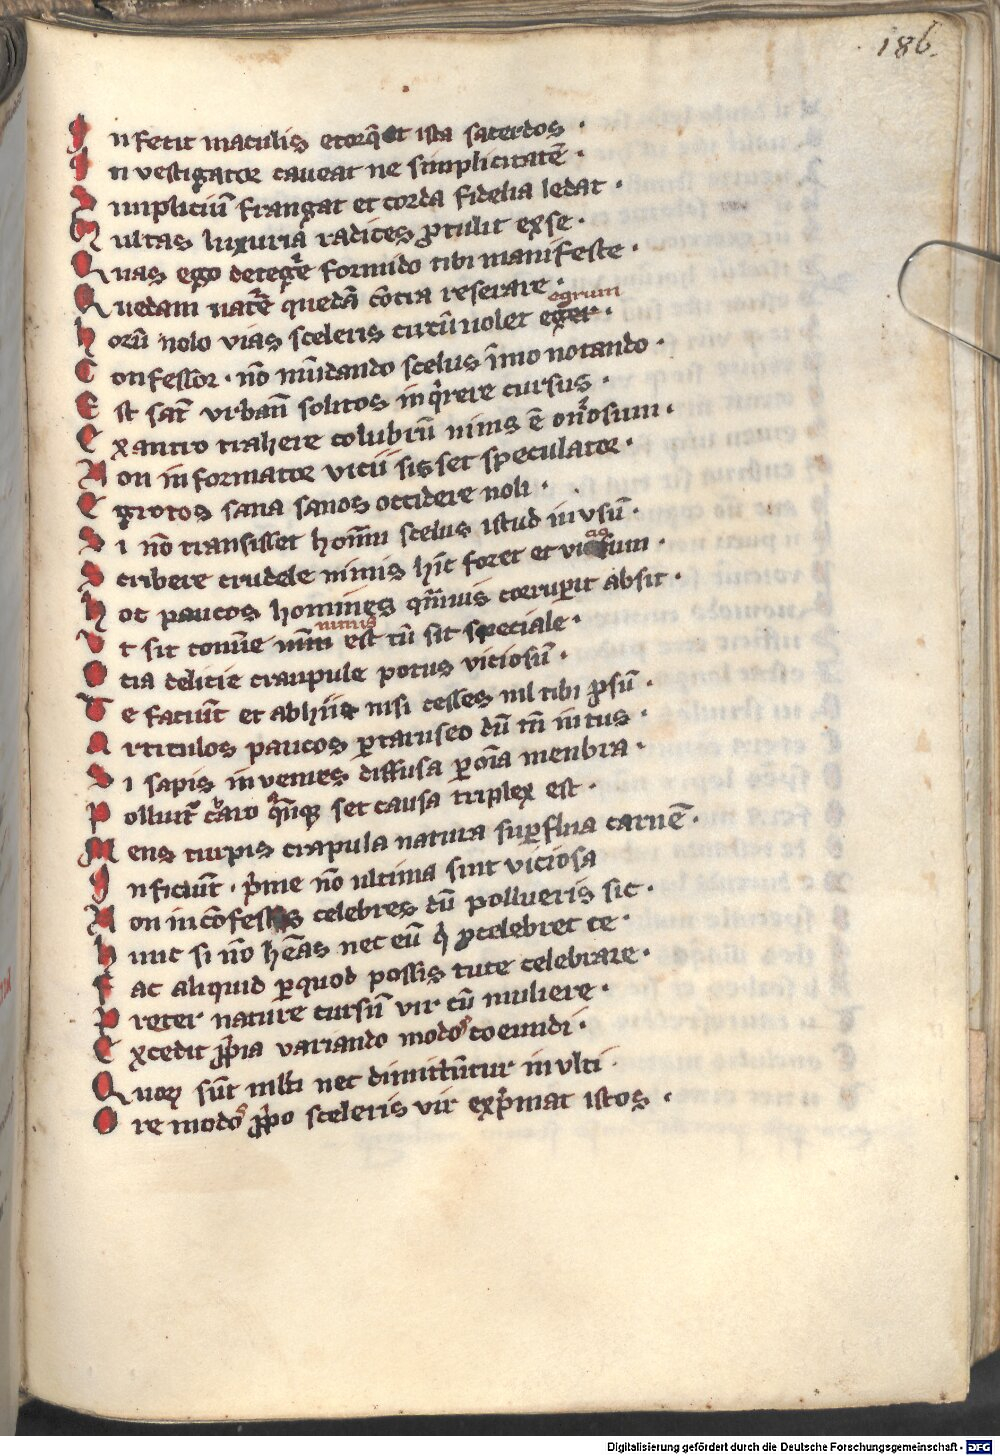 186.
Infecit maculis etorq̄et ista sacerdos ·
Investigator caveat ne simplicitatē ·
Simpliciū frangat et corda fidelia ledat ·
Multas luxuria radices ꝓtulit exse ·
Quas ego deteg̓e formido tibi manifeste ·
Quedam nat̓e quedā cōtra reserare ·
egrum
horū nolo vias sceleris curū nolet eger ·
Confessor · nō mūdando scelus īmo notando ·
Est sat̄ vrban̄ solitos inq̓rere cursus ·
Exantro trahere colubrū nimis ē on̓osum ·
Non informator vicii sis set speculator ·
Egrotos sana sanos occidere noli ·
Si nō transisset hōīm scelus istud in vsū ·
Scribere crudele nimis hīc foret et vi sum ·
hoc paucos homines qm̄uis corruperit absit ·
nimis
Vt sit cōmūe est cū sit speciale ·
Ocia delicie crapule potus viciosū ·
Te faciūt et abhiis nisi cesses nil tibi ꝓsū ·
Articulos paucos ꝑtaruseo dū tn̄ intus ·
Si sapis invenies diffusa ꝑ oīa menbra ·
Polluit̄ caro set causa triplex est ·
Mens turpis crapula natura suꝑflua carnē ·
Inficiūt · p̓me nō ultima sint viciosa
Non in cōfessus celebres cū pollueris sic ·
hunc si nō hēas nec eū q̓ ꝓcelebret te ·
Fac aliquid ꝑquod possis tute celebrare ·
Preter nature cursū vir cū muliere ·
Excedit ꝓp̓ia variando modos coeundi ·
Quoꝝ sūt mlti nec dimittūtur inulti ·
Ore modos ꝓp̓o sceleris vir exp̓mat istos ·
Digitalisierung gefördert durch die Deutsche Forschungsgemeinschaft - DFG